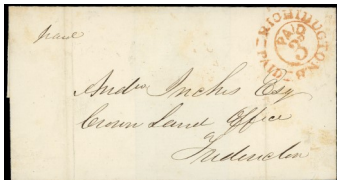 paid
RICHIBUCTO N.B.
PAID
PAID
3
Andw Inches Esq
Crown Land Office
Fredericton